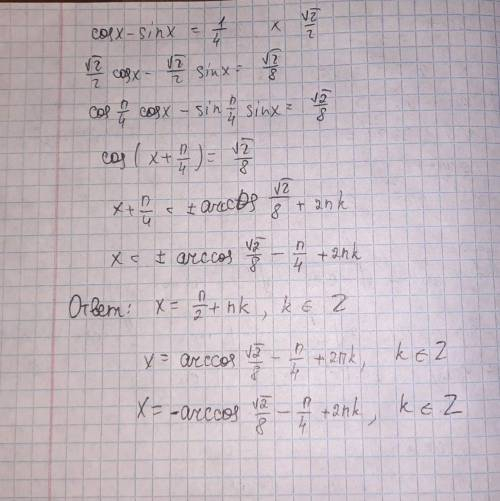 cosx - sinx = 1/4 x √2/2
√2/2 cosx - √2/2 sinx = √2/8
cos π/4 cosx - sin π/4 sinx = √2/8
cos(x + π/4) = √2/8
x + π/4 = ± arccos √2/8 + 2πk
x = ± arccos √2/8 - π/4 + 2πk
Ответ: x = π/2 + πk, k ∈ Z
x = arccos √2/8 - π/4 + 2πk, k ∈ Z
x = -arccos √2/8 - π/4 + 2πk, k ∈ Z